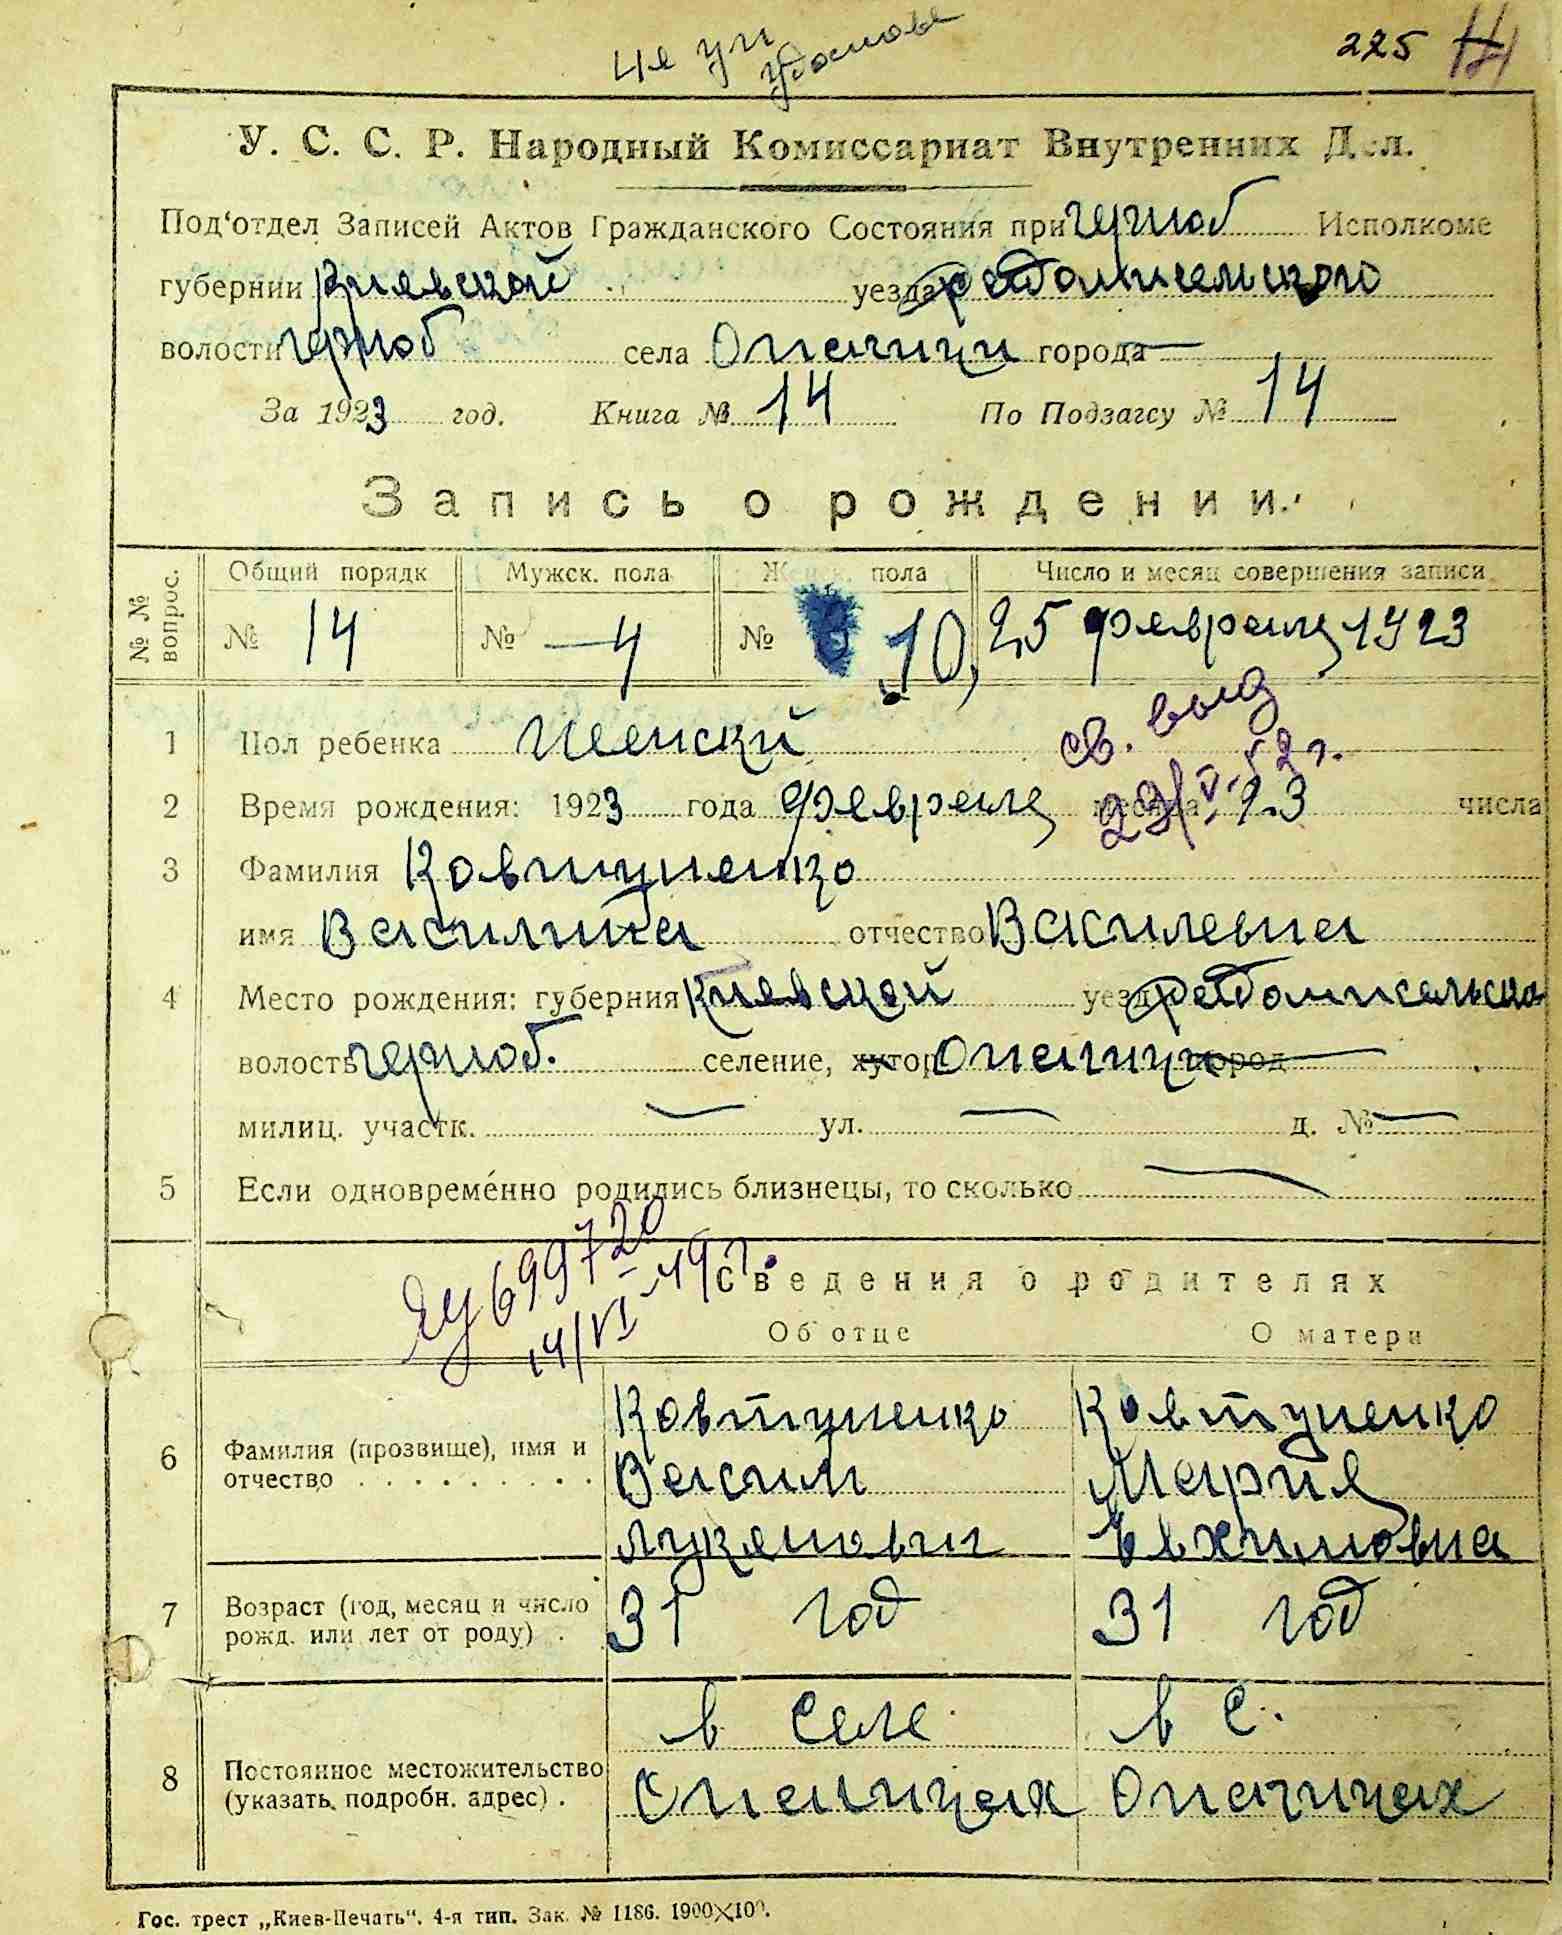 225
У. С. С. Р. Народный Комиссариат Внутренних Дел.
Под'отдел Записей Актов Гражданского Состояния при Черноб Исполкоме
губернии Киевской уезда Радомисельского
волости Черноб села Опачичи города —
За 1923 год. Книга № 14 По Подзагсу № 14
Запись о рождении.
№ № вопрос. Общий порядк Мужск. пола Женск. пола Число и месяц совершения записи
№ 14 № —4 № 10, 25 февраля 1923
св. выд
1 Пол ребенка Женский
29/V-52 г.
2 Время рождения: 1923 года февраля месяца 23 числа
3 Фамилия Ковтуненко
имя Василина отчество Василевна
4 Место рождения: губерния Киевской уезд Радомисельско
волость Черноб. селение, хутор Опачичи город —
милиц. участк. — ул. — д. № —
5 Если одновременно родились близнецы, то сколько —
ЯУ 699720
14/VI-49 г.
Сведения о родителях
Об отце О матери
Ковтуненко Ковтуненко
6 Фамилия (прозвище), имя и отчество . . . . . . . . . Васил Мария
Лукянович Евхимовна
7 Возраст (год, месяц и число рожд. или лет от роду) . 31 год 31 год
в селе в с.
8 Постоянное местожительство (указать подробн. адрес) . Опачичах Опачичах
Гос. трест „Киев-Печать“. 4-я тип. Зак. № 1186. 1900×100.